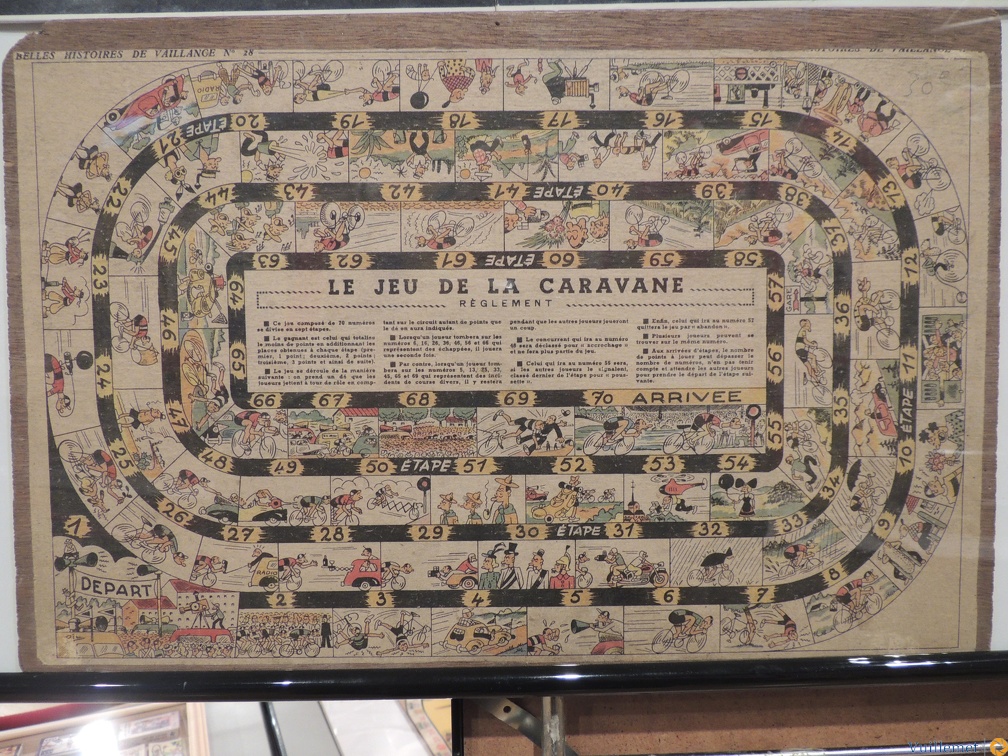 BELLES HISTOIRES DE VAILLANCE N° 28
LE JEU DE LA CARAVANE
RÈGLEMENT
Ce jeu composé de 70 numéros
se divise en sept étapes.
Le gagnant est celui qui totalise
le moins de points en additionnant les
places obtenues à chaque étape (pre-
mier, 1 point; deuxième, 2 points;
trois, 3 points et ainsi de suite).
Le jeu se déroule de la manière
suivante : on prend un dé que les
joueurs jettent à tour de rôle en comp-
tant sur le circuit autant de points que
le dé en aura indiqués.
Lorsqu'un joueur tombera sur les
représentant des échappées, il jouera
une seconde fois.
Par contre, lorsqu'un joueur tom-
bera sur les numéros
45, 65 et 69 qui représentent des inci-
dents de course divers, il y restera
pendant que les autres joueurs joueront
un coup.
Le concurrent qui ira au numéro
48 sera déclassé pour « accrochage »
et ne fera plus partie du jeu.
Celui qui ira au numéro 58 sera,
si les autres joueurs le signalent,
classé dernier de l'étape pour « pous-
sette ».
Enfin, celui qui ira au numéro 52
quittera le jeu par « abandon ».
Plusieurs joueurs peuvent se
trouver sur le même numéro.
Aux arrivées d'étapes, le nombre
de points à jouer peut dépasser le
nombre de numéros, n'en pas tenir
compte et attendre les autres joueurs
pour prendre le départ de l'étape sui-
vante.
DEPART
1
2
3
4
5
6
7
8
9
10
ÉTAPE
11
12
13
14
15
16
17
18
19
20
ÉTAPE
21
22
23
24
25
26
27
28
29
30
ÉTAPE
31
32
33
34
35
36
37
38
39
40
ÉTAPE
41
42
43
44
45
46
47
48
49
50
ÉTAPE
51
52
53
54
55
56
57
58
59
60
ÉTAPE
61
62
63
64
65
66
67
68
69
70
ARRIVEE
RADIO
RADIO
vuillemet